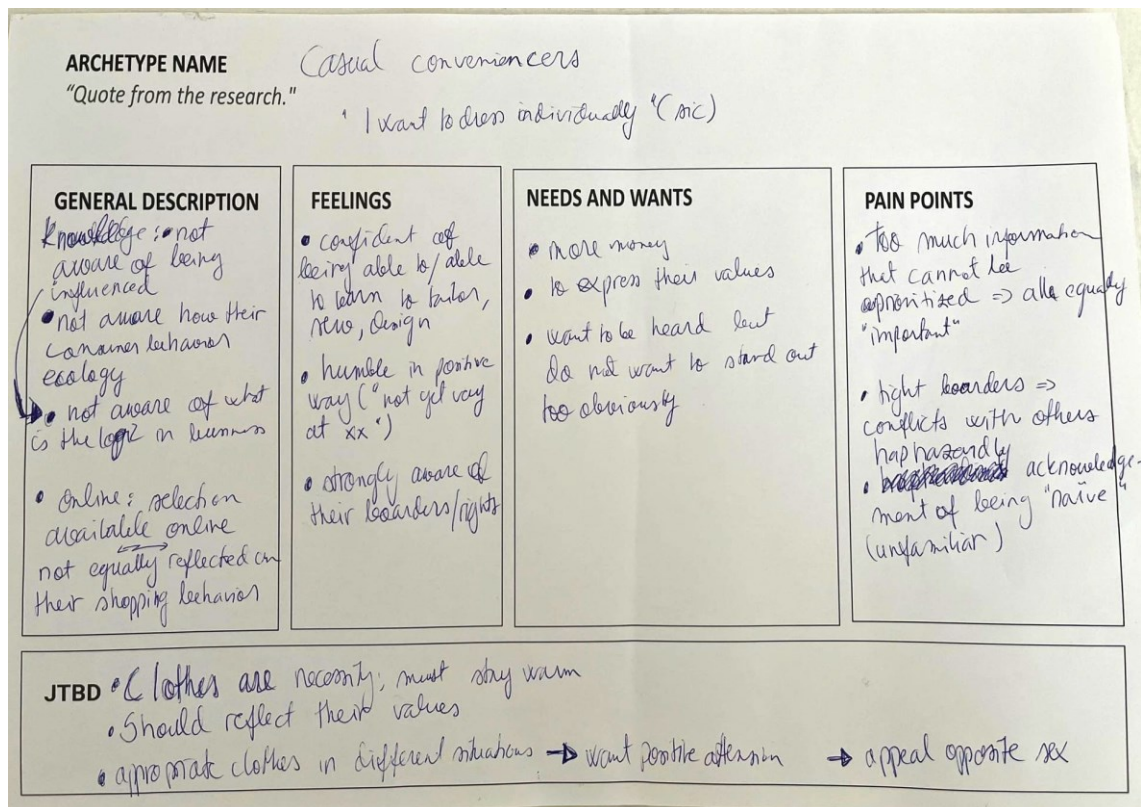 ARCHETYPE NAME Casual conveniencers
"Quote from the research."
"I want to dress individually" (sic)
GENERAL DESCRIPTION
Knowledge: • not
aware of being
influenced
• not aware how their
consumer behavior
ecology
• not aware of what
is the logic in business
• Online: selection
available online
not equally reflected on
their shopping behavior
FEELINGS
• confident of
being able to/able
to learn to tailor,
sew, design
• humble in positive
way ("not yet very
at xx")
• strongly aware of
their boarders/rights
NEEDS AND WANTS
• more money
• to express their values
• want to be heard but
do not want to stand out
too obviously
PAIN POINTS
• Too much information
that cannot be
prioritized => all equally
"important"
• tight boarders =>
conflicts with others
haphazardly
• acknowledge-
ment of being "naïve"
(unfamiliar)
JTBD • Clothes are necessity; must stay warm
• Should reflect their values
• appropriate clothes in different situations → want positive attension → appeal opposite sex